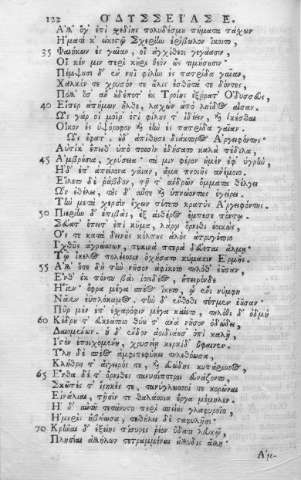 122 ΟΔΥΣΣΕΙΑΣ Ε.
Ἀλλ' ὅγ' ἐπὶ σχεδίης πολυδέσμου πήματα πάσχων
Ἤματί κ' εἰκοστῷ Σχερίην ἐρίβωλον ἵκοιτο,
35 Φαιήκων ἐς γαῖαν, οἳ ἀγχίθεοι γεγάασιν·
Οἵ κέν μιν περὶ κῆρι θεὸν ὣς τιμήσουσι·
Πέμψουσι δ' ἐν νηῒ φίλην ἐς πατρίδα γαῖαν,
Χαλκόν τε χρυσόν τε ἅλις ἐσθῆτά τε δόντες,
Πόλλ' ὅσ' ἂν οὐδέποτε Τροίης ἐξήρατ' Ὀδυσσεὺς,
40 Εἴπερ ἀπήμων ἦλθε, λαχὼν ἀπὸ ληΐδος αἶσαν.
Ὣς γάρ οἱ μοῖρ' ἐστὶ φίλους τ' ἰδέειν, καὶ ἱκέσθαι
Οἶκον ἐς ὑψόροφον καὶ ἑὴν ἐς πατρίδα γαῖαν.
Ὣς ἔφατ'· οὐδ' ἀπίθησε διάκτορος Ἀργειφόντης·
Αὐτίκ' ἔπειθ' ὑπὸ ποσσὶν ἐδήσατο καλὰ πέδιλα,
45 Ἀμβρόσια, χρύσεια· τά μιν φέρον ἠμὲν ἐφ' ὑγρὴν,
Ἠδ' ἐπ' ἀπείρονα γαῖαν, ἅμα πνοιῇς ἀνέμοιο.
Εἵλετο δὲ ῥάβδον, τῇ τ' ἀνδρῶν ὄμματα θέλγει
Ὧν ἐθέλει, τοὺς δ' αὖτε καὶ ὑπνώοντας ἐγείρει·
Τὴν μετὰ χερσὶν ἔχων πέτετο κρατὺς Ἀργειφόντης.
50 Πιερίην δ' ἐπιβὰς, ἐξ αἰθέρος ἔμπεσε πόντῳ·
Σεύατ' ἔπειτ' ἐπὶ κῦμα, λάρῳ ὄρνιθι ἐοικὼς,
Ὅς τε κατὰ δεινοὺς κόλπους ἁλὸς ἀτρυγέτοιο
Ἰχθῦς ἀγρώσσων, πυκινὰ πτερὰ δεύεται ἅλμῃ·
Τῷ ἴκελος πολέεσσιν ὀχήσατο κύμασιν Ἑρμῆς.
55 Ἀλλ' ὅτε δὴ τὴν νῆσον ἀφίκετο τηλόθ' ἐοῦσαν,
Ἔνθ' ἐκ πόντου βὰς ἰοειδέος, ἤπειρόνδε
Ἤϊεν, ὄφρα μέγα σπέος ἵκετο, τῷ ἔνι Νύμφη
Ναῖεν ἐϋπλόκαμος, τὴν δ' ἔνδοθι τέτμεν ἐοῦσαν·
Πῦρ μὲν ἐπ' ἐσχαρόφιν μέγα καίετο, τηλόθι δ' ὀδμὴ
60 Κέδρου τ' εὐκεάτοιο θύου τ' ἀνὰ νῆσον ὀδώδει,
Δαιομένων. ἡ δ' ἔνδον ἀοιδιάουσ' ὀπὶ καλῇ,
Ἱστὸν ἐποιχομένη, χρυσείῃ κερκίδ' ὕφαινεν.
Ὕλη δὲ σπέος ἀμφιπεφύκει τηλεθόωσα,
Κλήθρη τ' αἴγειρός τε, καὶ εὐώδης κυπάρισσος,
65 Ἔνθα δέ τ' ὄρνιθες τανυσίπτεροι εὐνάζοντο,
Σκῶπές τ' ἴρηκές τε, τανύγλωσσοί τε κορῶναι
Εἰνάλιαι, τῇσίν τε θαλάσσια ἔργα μέμηλεν.
Ἡ δ' αὐτοῦ τετάνυστο περὶ σπείους γλαφυροῖο
Ἡμερὶς ἡβώωσα, τεθήλει δὲ σταφυλῇσι·
70 Κρῆναι δ' ἑξείης πίσυρες ῥέον ὕδατι λευκῷ,
Πλησίαι ἀλλήλων τετραμμέναι ἄλλυδις ἄλλη·
Ἀμ-